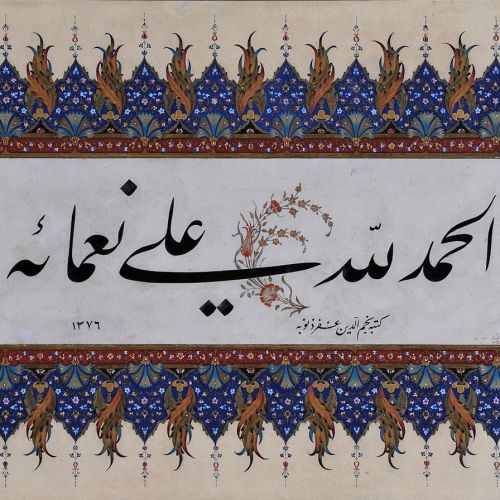 الحمد لله على نعمائه
كتبه نجم الدين غفر ذنوبه
١٣٧٦